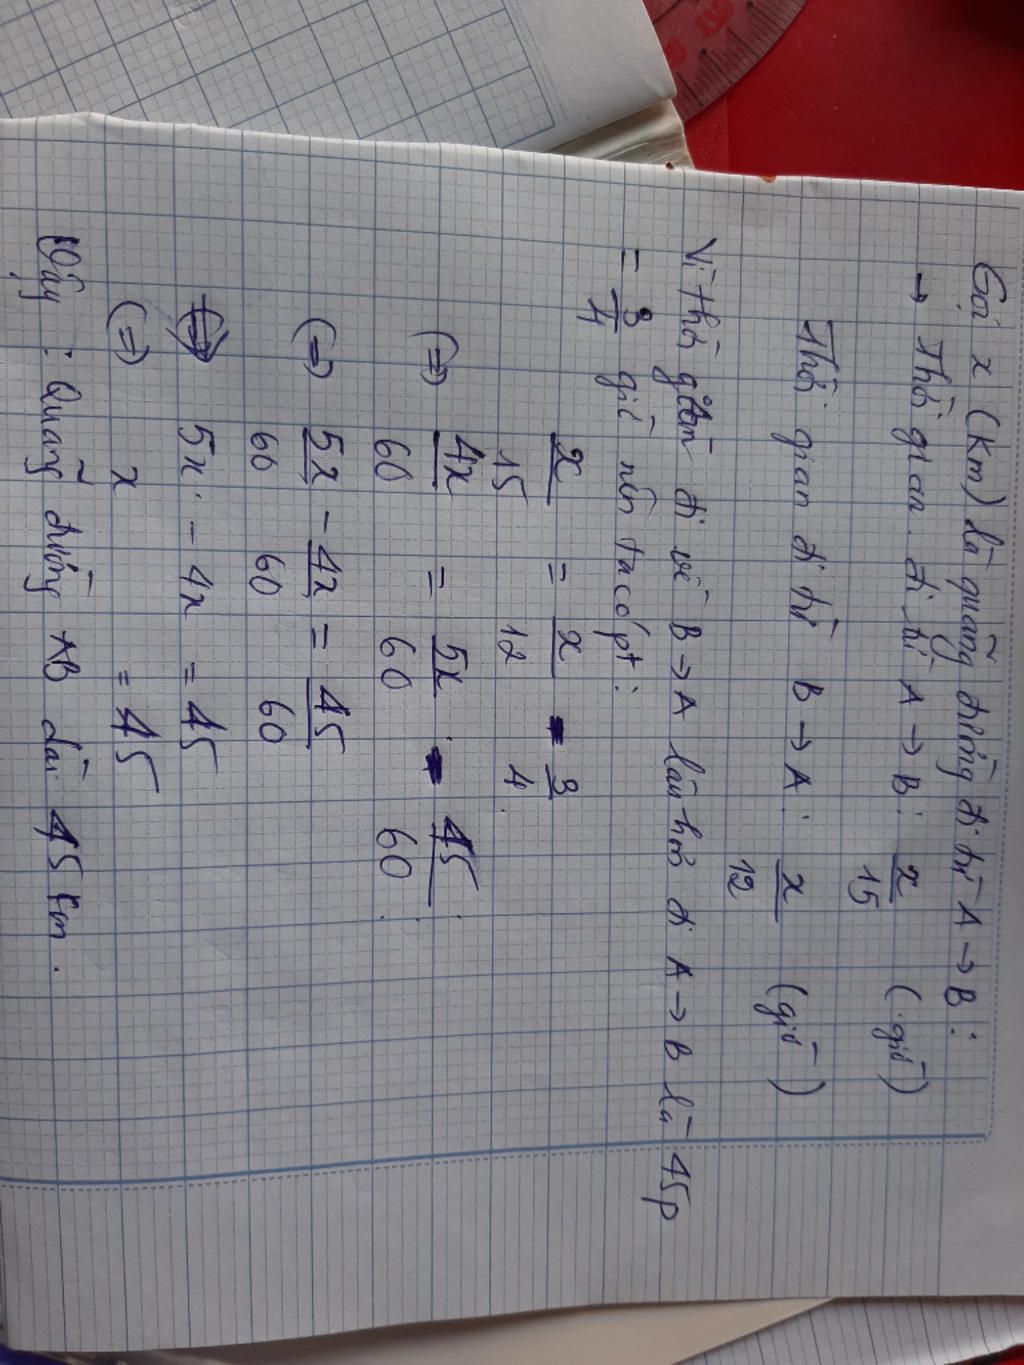 Gọi x (km) là quãng đường đi từ A → B :
→ Thời gian đi từ A → B : x/15 (giờ)
Thời gian đi từ B → A : x/12 (giờ)
Vì thời gian đi về B → A lâu hơn đi A → B là 45p
= 3/4 giờ nên ta có pt :
x/15 = x/12 - 3/4
(=) 4x/60 = 5x/60 - 45/60
(=) 5x/60 - 4x/60 = 45/60
(=) 5x - 4x = 45
(=) x = 45
Vậy : Quãng đường AB dài 45 km .